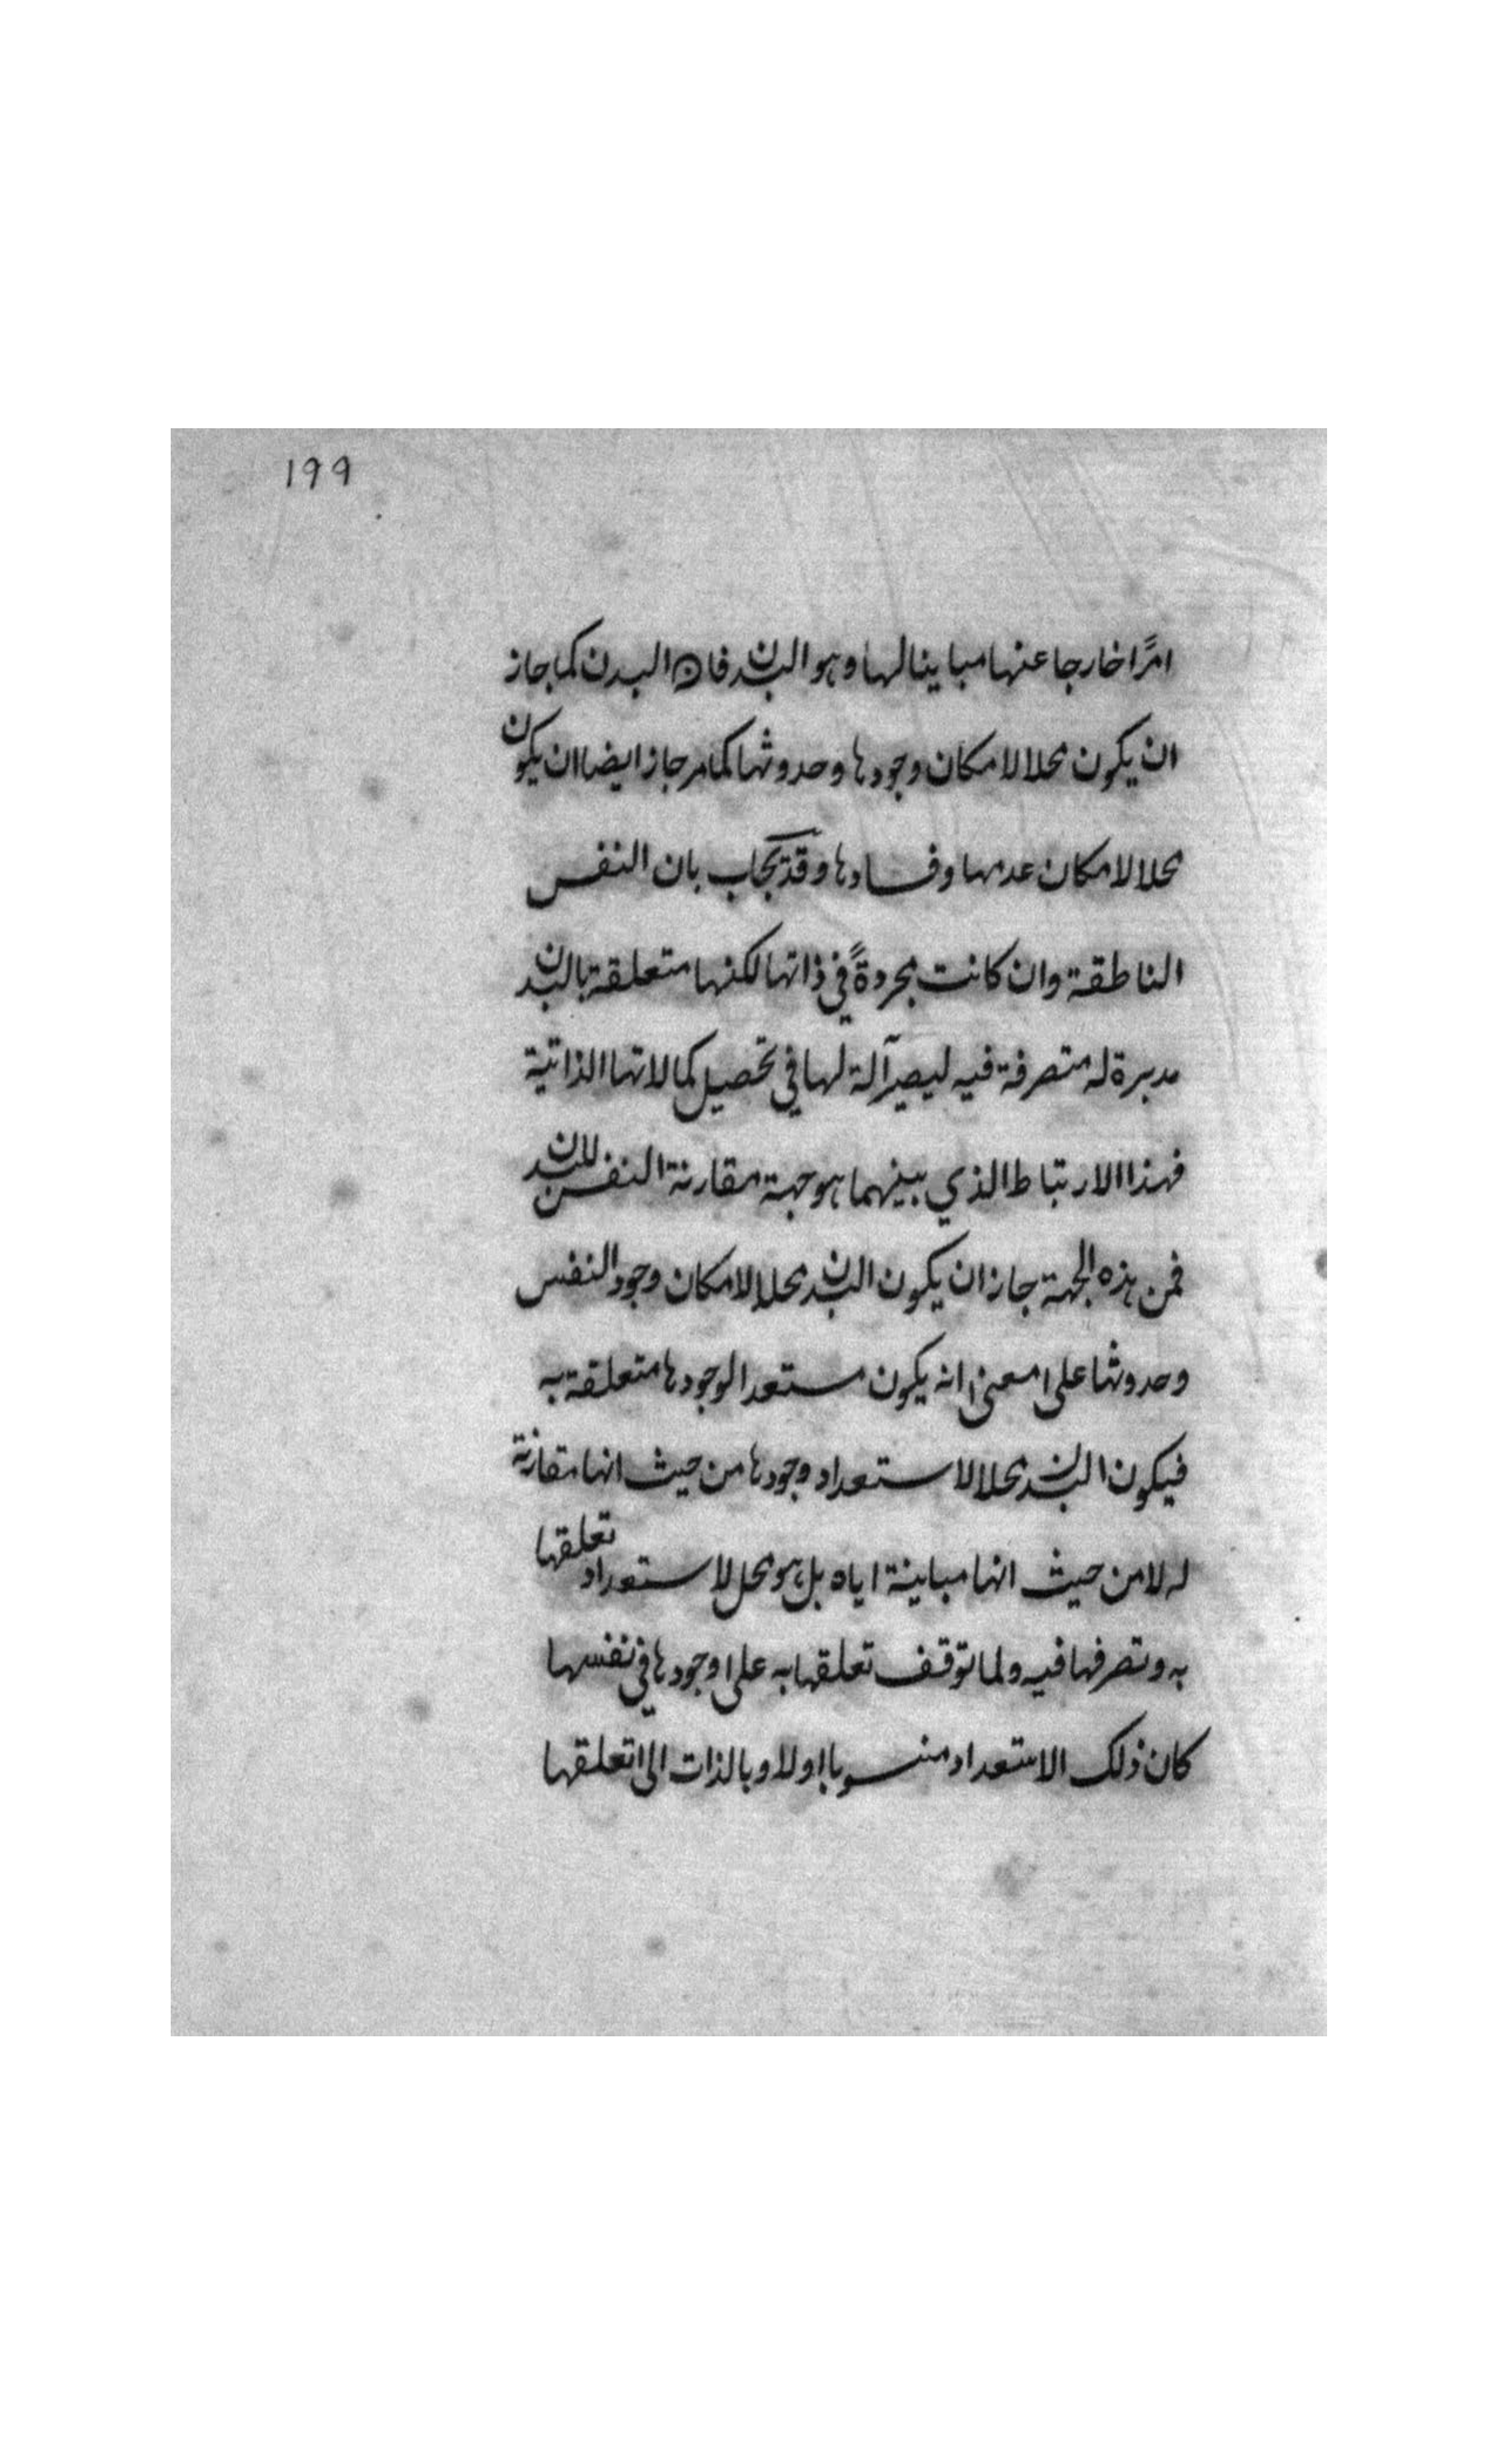 ١٩٩
امرًا خارجا عنها مباينا لها وهو البدن فان البدن كما جاز
ان يكون محلا لامكان وجودها وحدوثها كما مر جاز ايضا ان يكون
محلا لامكان عدمها وفسادها وقد يجاب بان النفس
الناطقة وان كانت مجردةً في ذاتها لكنها متعلقة بالبدن
مدبرة له متصرفة فيه ليصير آلة لها في تحصيل كمالاتها الذاتية
فهذا الارتباط الذي بينهما هو جهة مقارنة النفس للبدن
فمن هذه الجهة جاز ان يكون البدن محلا لامكان وجود النفس
وحدوثها على معنى انه يكون مستعدا لوجودها متعلقة به
فيكون البدن محلا لاستعداد وجودها من حيث انها مقارنة
له لا من حيث انها مباينة اياه بل هو محل لاستعداد تعلقها
به وتصرفها فيه ولما توقف تعلقها به على وجودها في نفسها
كان ذلك الاستعداد منسوبا اولا وبالذات الى تعلقها